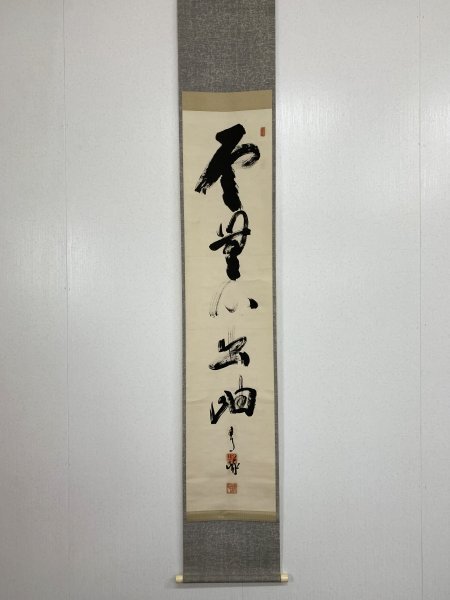 雲無心出岫